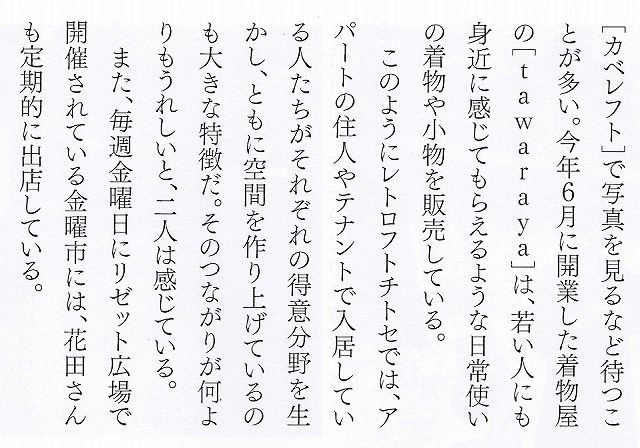 [カベレフト]で写真を見るなど待つこ
とが多い。今年6月に開業した着物屋
の[tawaraya]は、若い人にも
身近に感じてもらえるような日常使い
の着物や小物を販売している。
　このようにレトロフトチトセでは、ア
パートの住人やテナントで入居してい
る人たちがそれぞれの得意分野を生
かし、ともに空間を作り上げているの
も大きな特徴だ。そのつながりが何よ
りもうれしいと、二人は感じている。
　また、毎週金曜日にリゼット広場で
開催されている金曜市には、花田さん
も定期的に出店している。